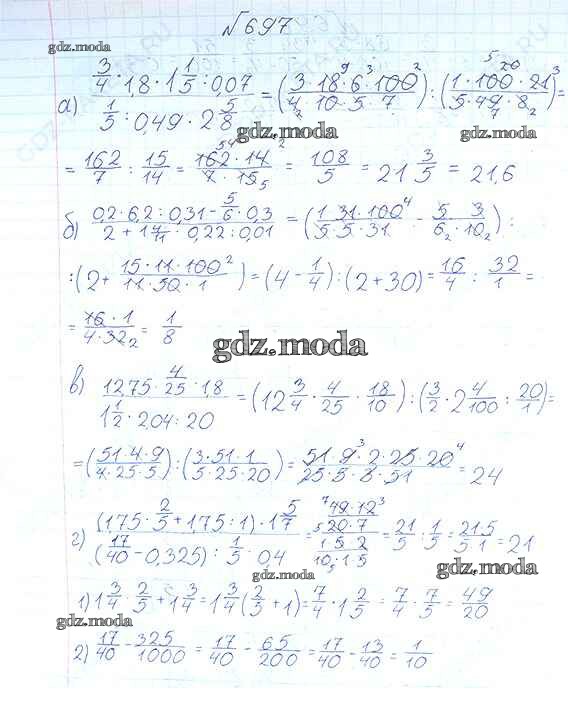 №697
gdz.moda
а) (3/4 · 1,8 · 1 1/5 : 0,07) / (1/5 : 0,49 · 2 5/8) = (3·18·6·100 / 4·10·5·7) : (1·100·21 / 5·49·8) =
gdz.moda
= 162/7 : 15/14 = 162·14 / 7·15 = 108/5 = 21 3/5 = 21,6
gdz.moda
б) (0,2·6,2 : 0,31 - 5/6 · 0,3) / (2 + 1 4/11 · 0,22 : 0,01) = (1·31·100 / 5·5·31 - 5·3 / 6·10) :
: (2 + 15·11·100 / 11·50·1) = (4 - 1/4) : (2 + 30) = 16/4 : 32/1 =
= 16·1 / 4·32 = 1/8
gdz.moda
в) (12,75 · 4/25 · 1,8) / (1 1/2 · 2,04 : 20) = (12 3/4 · 4/25 · 18/10) : (3/2 · 2 4/100 : 20/1) =
= (51·4·9 / 4·25·5) : (3·51·1 / 5·25·20) = 51·9·2·25·20 / 25·5·3·51 = 24
gdz.moda
г) ((1,75 · 2/5 + 1,75 : 1) · 1 5/7) / ((17/40 - 0,325) : 1/5 · 0,4) = (49·12 / 20·7) / (1·5·2 / 10·1·5) = 21/5 : 1/5 = 21·5 / 5·1 = 21
gdz.moda
1) 1 3/4 · 2/5 + 1 3/4 = 1 3/4 (2/5 + 1) = 7/4 · 1 2/5 = 7/4 · 7/5 = 49/20
gdz.moda
gdz.moda
2) 17/40 - 325/1000 = 17/40 - 65/200 = 17/40 - 13/40 = 1/10